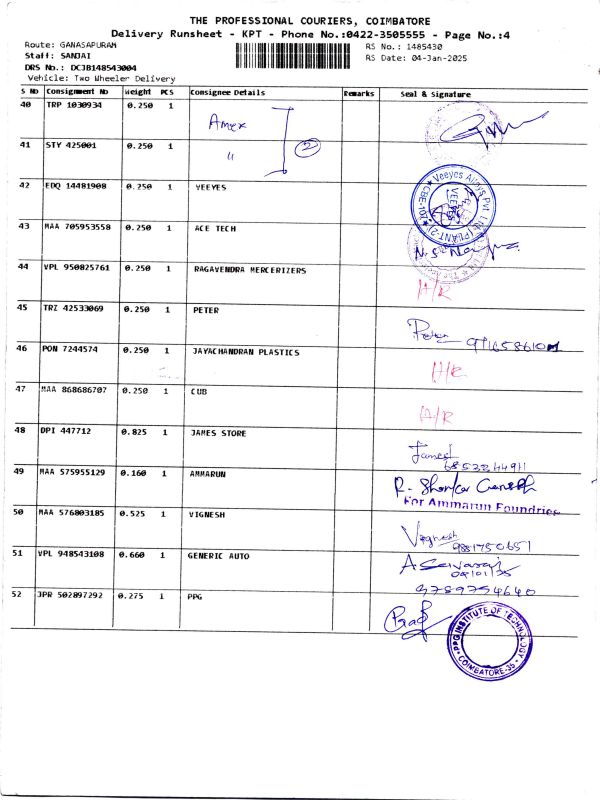 THE PROFESSIONAL COURIERS, COIMBATORE
Delivery Runsheet - KPT - Phone No.:0422-3505555 - Page No.:4
Route: GANASAPURAM
RS No.: 1485430
Staff: SANJAI
RS Date: 04-Jan-2025
DRS No.: DCJB148543004
Vehicle: Two Wheeler Delivery
S No Consignment No Weight PCS Consignee Details Remarks Seal & Signature
40 TRP 1030934 0.250 1 Amex
41 STY 425001 0.250 1 " 2
42 EDQ 14481908 0.250 1 VEEYES
Veeyes Alloys Pvt. Ltd. (PLANT-2) CBE-107
43 MAA 705953558 0.250 1 ACE TECH
44 VPL 950825761 0.250 1 RAGAVENDRA MERCERIZERS A/R
45 TRZ 42533069 0.250 1 PETER Peter
46 PON 7244574 0.250 1 JAYACHANDRAN PLASTICS A/R
47 MAA 868686707 0.250 1 CUB A/R
48 DPI 447712 0.825 1 JAMES STORE James
49 MAA 575955129 0.160 1 AMMARUN
For Ammarun Foundries
50 MAA 576803185 0.525 1 VIGNESH Vignesh
9881750651
51 VPL 948543108 0.660 1 GENERIC AUTO
9789754640
52 JPR 502897292 0.275 1 PPG
PPG INSTITUTE OF TECHNOLOGY COIMBATORE-35